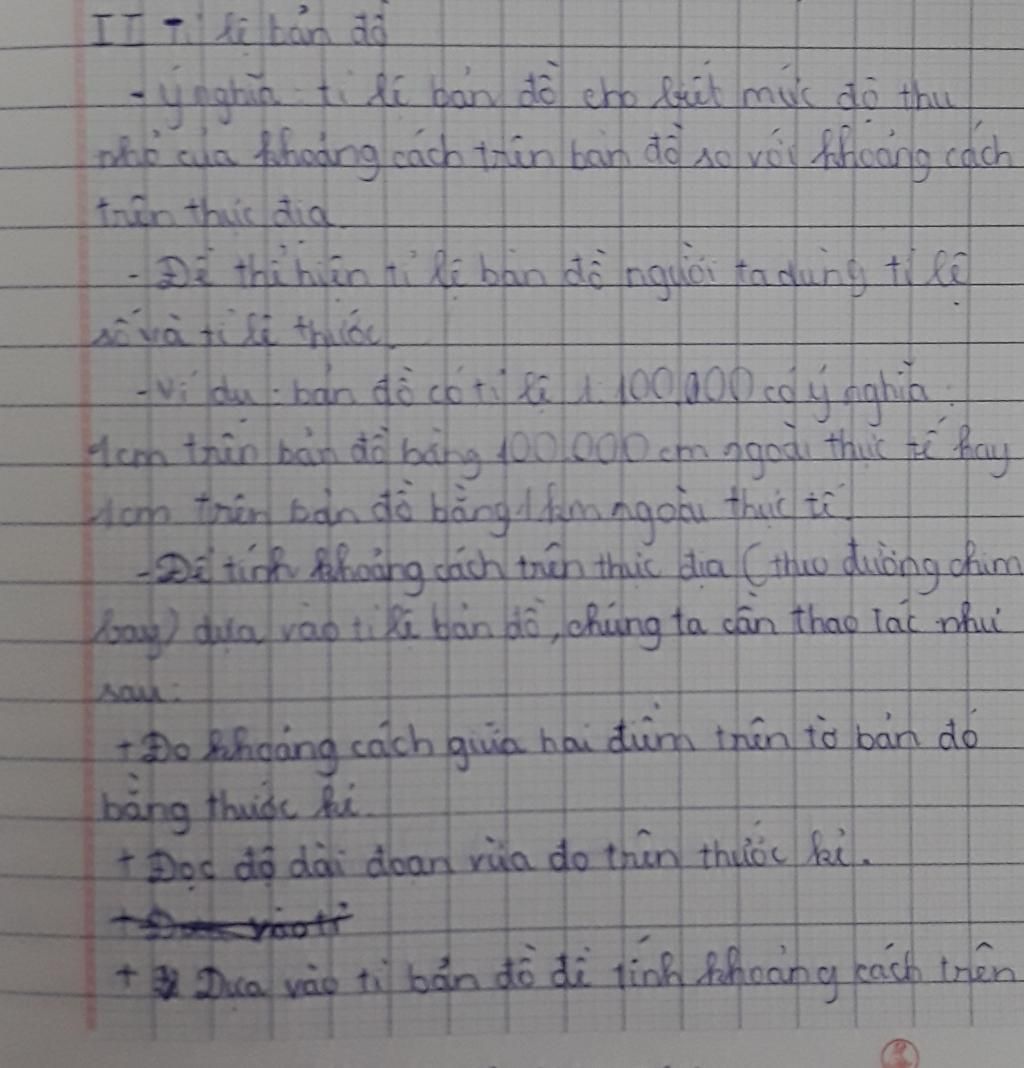 II Tỉ lệ bản đồ
- Ý nghĩa: tỉ lệ bản đồ cho biết mức độ thu
nhỏ của khoảng cách trên bản đồ so với khoảng cách
trên thực địa
- Để thể hiện tỉ lệ bản đồ người ta dùng tỉ lệ
số và tỉ lệ thước.
- Ví dụ: bản đồ có tỉ lệ 1:100.000 có ý nghĩa:
1cm trên bản đồ bằng 100.000 cm ngoài thực tế hay
1cm trên bản đồ bằng 1km ngoài thực tế
- Để tính khoảng cách trên thực địa (theo đường chim
bay) dựa vào tỉ lệ bản đồ, chúng ta cần thao tác như
sau:
+ Đo khoảng cách giữa hai điểm trên tờ bản đồ
bằng thước kẻ.
+ Đọc độ dài đoạn vừa đo trên thước kẻ.
+ Dựa vào tỉ bản đồ để tính khoảng cách trên